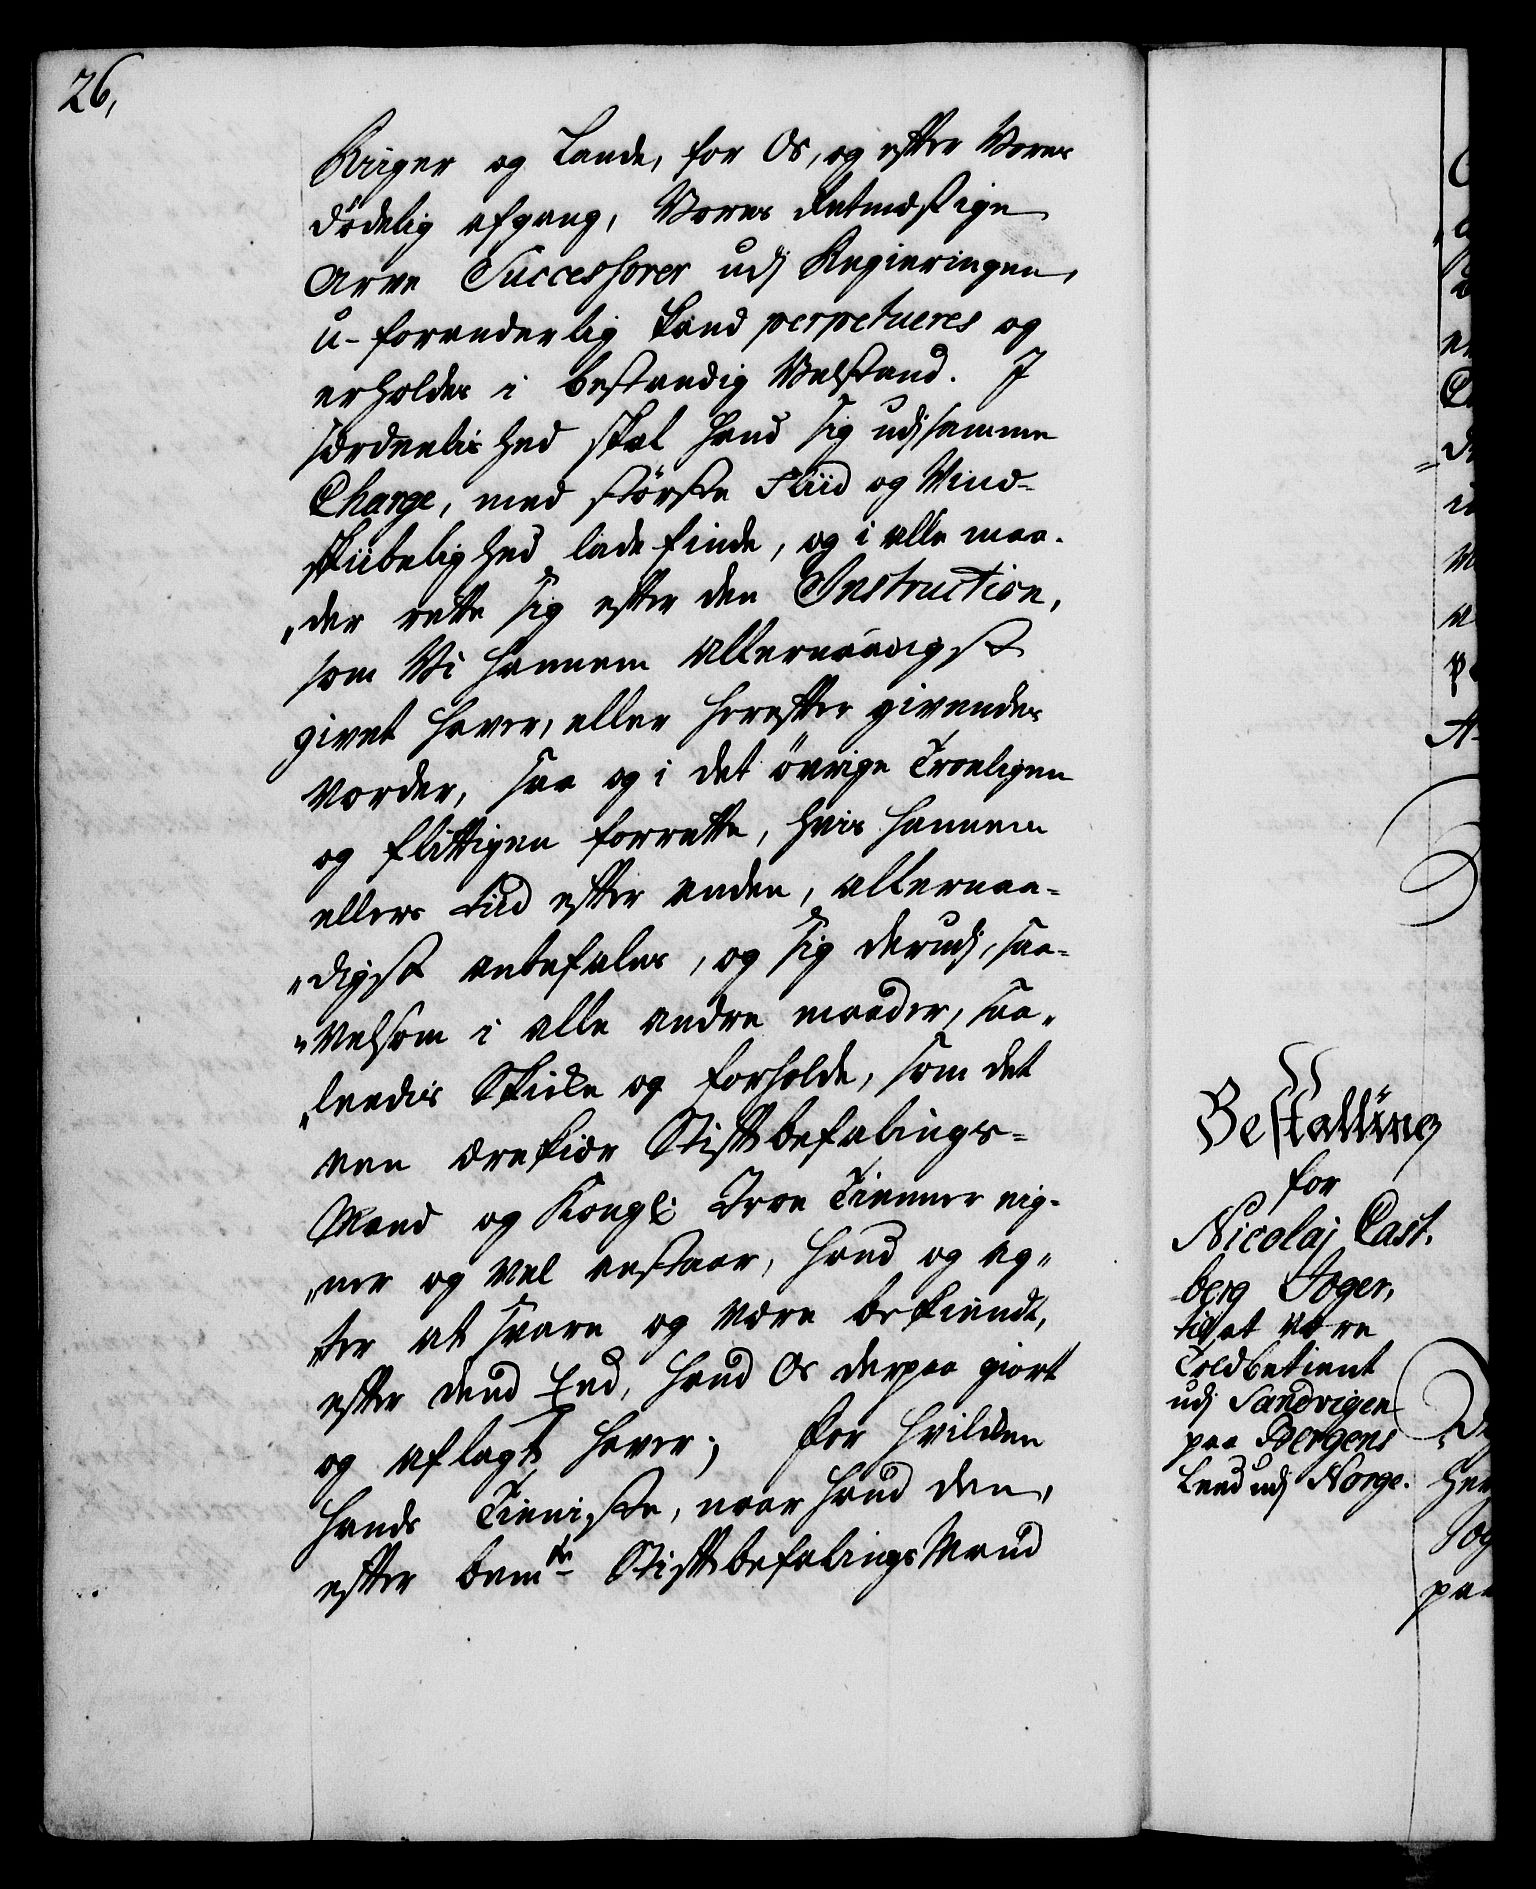 26,
Riiger og Lande, for Os, og efter Vores
dødelig afgang, Vores Retmæssige
Arve Successorer udj Regieringen,
u-foranderlig kand perpetueres og
erholdes i bestandig Velstand. J
særdeelis hed skal hand sig udj samme
Charge, med største Fliid og Vind-
skiibelighed lade finde, og i alle maa-
"der rette sig efter den Instruction,
som Vi hannem allernaadigst
givet haver, eller herefter givendes
vorder, saa og i det övrige Troeligen
og flittigen forrette, hvis hannem
ellers Tiid efter anden, allernaa-
"digst anbefales, og sig derudj, saa-
"velsom i alle andre maader, saa-
"leedis skicke og forholde, som det
een ærekiær Stiftbefalings-
Mand og Kongl: Troe Tienner eig-
"ner og vel anstaar, hand og ag-
ter at svare og være bekiendt,
efter dend Eed, hand Os derpaa giort
og aflagt haver; For hvilcken
hands Tieniste, naar hand den,
efter bemte Stiftbefalings Mand
Bestalling
for
Nicolaj Cast-
berg Soger,
til at være
Toldbetient
udj Sandvigen
paa Bergens
Leed udj Norge.